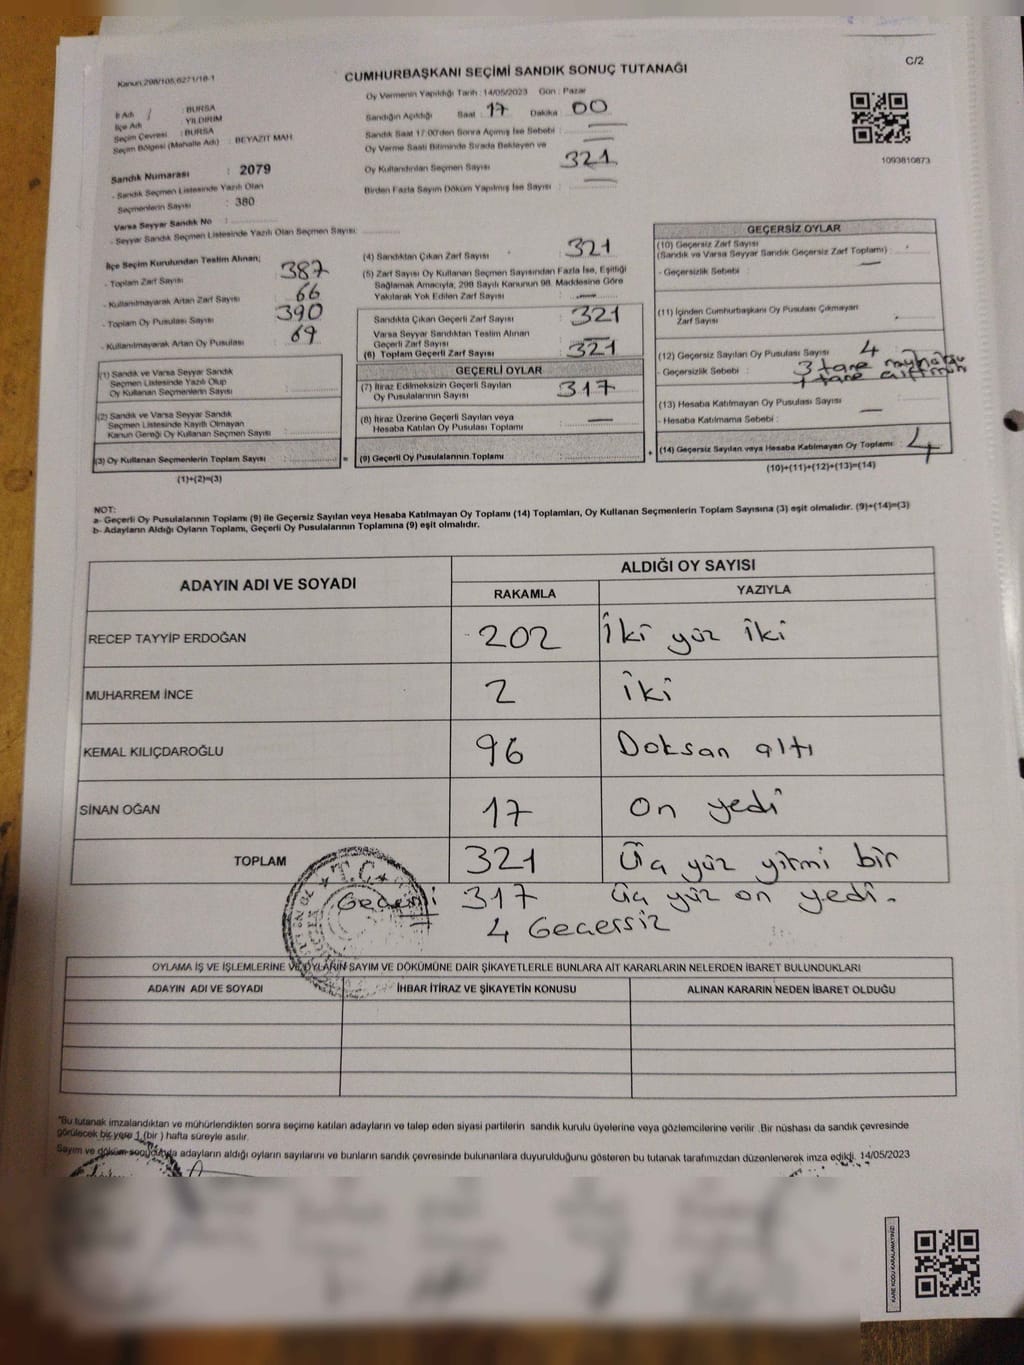 Kanun:298/105,6271/18-1
CUMHURBAŞKANI SEÇİMİ SANDIK SONUÇ TUTANAĞI
C/2
Oy Vermenin Yapıldığı Tarih : 14/05/2023 Gün : Pazar
İl Adı : BURSA
İlçe Adı : YILDIRIM
Seçim Çevresi : BURSA
Seçim Bölgesi (Mahalle Adı) : BEYAZIT MAH
Sandığın Açıldığı Saat : 17 Dakika : 00
Sandık Saat 17:00'den Sonra Açılmış İse Sebebi :
Oy Verme Saati Bitiminde Sırada Bekleyen ve
Oy Kullandırılan Seçmen Sayısı : 321
Birden Fazla Sayım Döküm Yapılmış İse Sayısı :
1093810873
Sandık Numarası : 2079
- Sandık Seçmen Listesinde Yazılı Olan
Seçmenlerin Sayısı : 380
Varsa Seyyar Sandık No :
- Seyyar Sandık Seçmen Listesinde Yazılı Olan Seçmen Sayısı:
İlçe Seçim Kurulundan Teslim Alınan;
- Toplam Zarf Sayısı 387
- Kullanılmayarak Artan Zarf Sayısı 66
- Toplam Oy Pusulası Sayısı 390
- Kullanılmayarak Artan Oy Pusulası 69
(1) Sandık ve Varsa Seyyar Sandık
Seçmen Listesinde Yazılı Olup
Oy Kullanan Seçmenlerin Sayısı :
(2) Sandık ve Varsa Seyyar Sandık
Seçmen Listesinde Kayıtlı Olmayan
Kanun Gereği Oy Kullanan Seçmen Sayısı :
(3) Oy Kullanan Seçmenlerin Toplam Sayısı :
(1)+(2)=(3)
(4) Sandıktan Çıkan Zarf Sayısı : 321
(5) Zarf Sayısı Oy Kullanan Seçmen Sayısından Fazla İse, Eşitliği
Sağlamak Amacıyla, 298 Sayılı Kanunun 98. Maddesine Göre
Yakılarak Yok Edilen Zarf Sayısı :
Sandıkta Çıkan Geçerli Zarf Sayısı : 321
Varsa Seyyar Sandıktan Teslim Alınan
Geçerli Zarf Sayısı :
(6) Toplam Geçerli Zarf Sayısı : 321
GEÇERLİ OYLAR
(7) İtiraz Edilmeksizin Geçerli Sayılan
Oy Pusulalarının Sayısı : 317
(8) İtiraz Üzerine Geçerli Sayılan veya
Hesaba Katılan Oy Pusulası Toplamı :
= (9) Geçerli Oy Pusulalarının Toplamı :
GEÇERSİZ OYLAR
(10) Geçersiz Zarf Sayısı
(Sandık ve Varsa Seyyar Sandık Geçersiz Zarf Toplamı) :
- Geçersizlik Sebebi :
(11) İçinden Cumhurbaşkanı Oy Pusulası Çıkmayan
Zarf Sayısı
(12) Geçersiz Sayılan Oy Pusulası Sayısı : 4
- Geçersizlik Sebebi : 3 tane
1 tane
(13) Hesaba Katılmayan Oy Pusulası Sayısı :
- Hesaba Katılmama Sebebi :
+ (14) Geçersiz Sayılan veya Hesaba Katılmayan Oy Toplamı: 4
(10)+(11)+(12)+(13)=(14)
NOT:
a- Geçerli Oy Pusulalarının Toplamı (9) ile Geçersiz Sayılan veya Hesaba Katılmayan Oy Toplamı (14) Toplamları, Oy Kullanan Seçmenlerin Toplam Sayısına (3) eşit olmalıdır. (9)+(14)=(3)
b- Adayların Aldığı Oyların Toplamı, Geçerli Oy Pusulalarının Toplamına (9) eşit olmalıdır.
ADAYIN ADI VE SOYADI
ALDIĞI OY SAYISI
RAKAMLA YAZIYLA
RECEP TAYYİP ERDOĞAN 202 İki yüz iki
MUHARREM İNCE 2 iki
KEMAL KILIÇDAROĞLU 96 Doksan altı
SİNAN OĞAN 17 On yedi
TOPLAM 321 Üç yüz yirmi bir
T.C.
Geçerli 317 üç yüz on yedi.
4 Geçersiz
OYLAMA İŞ VE İŞLEMLERİNE VE OYLARIN SAYIM VE DÖKÜMÜNE DAİR ŞİKAYETLERLE BUNLARA AİT KARARLARIN NELERDEN İBARET BULUNDUKLARI
ADAYIN ADI VE SOYADI İHBAR İTİRAZ VE ŞİKAYETİN KONUSU ALINAN KARARIN NEDEN İBARET OLDUĞU
*Bu tutanak imzalandıktan ve mühürlendikten sonra seçime katılan adayların ve talep eden siyasi partilerin sandık kurulu üyelerine veya gözlemcilerine verilir .Bir nüshası da sandık çevresinde
görülecek bir yere 1 (bir ) hafta süreyle asılır.
Sayım ve döküm sonucunda adayların aldığı oyların sayılarını ve bunların sandık çevresinde bulunanlara duyurulduğunu gösteren bu tutanak tarafımızdan düzenlenerek imza edildi. 14/05/2023
KARE KODU KARALAMAYINIZ!